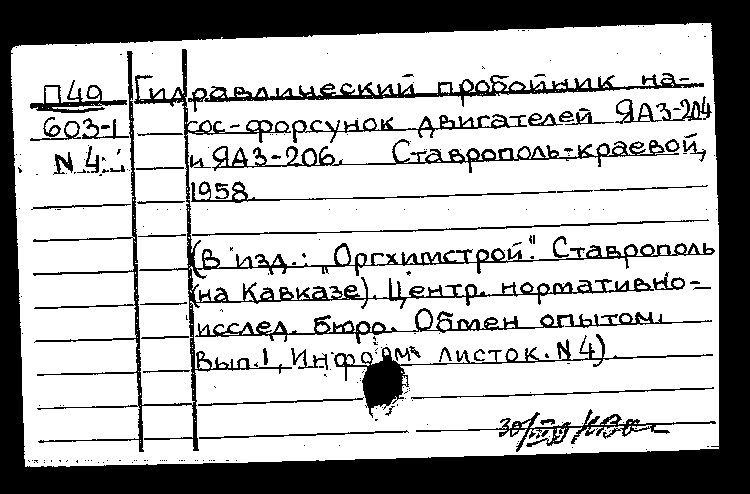 П49 Гидравлический пробойник на-
603-1 сос-форсунок двигателей ЯАЗ-204
N 4. и ЯАЗ-206. Ставрополь-краевой,
1958.
(В изд.: „Оргхимстрой". Ставрополь
(на Кавказе). Центр. нормативно-
исслед. бюро. Обмен опытом.
Вып.1, Информ. листок. N 4).
30/